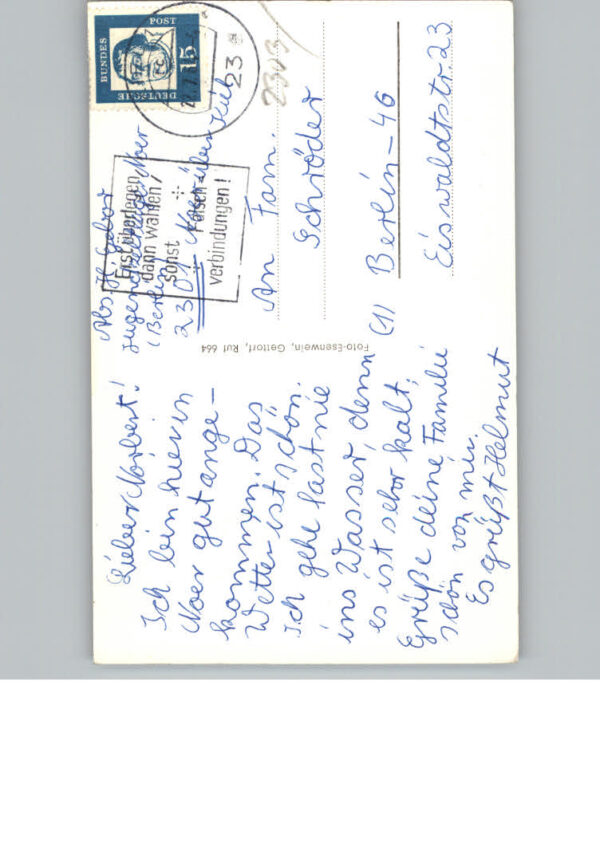 Lieber Norbert!
Ich bin hier in
Noer gut ange-
kommen. Das
Wetter ist schön.
Ich gehe fast nie
ins Wasser, denn
es ist sehr kalt.
Grüße deine Familie
schön von mir.
Es grüßt Helmut
Foto-Essenwein, Gettorf, Ruf 664
Abs. H.
Jugend Noer
(Berlin)
2301 Noer über Kiel
DEUTSCHE BUNDESPOST
15
23
2303
Erst überlegen,
dann wählen
sonst Falsch-
verbindungen!
An Fam.
Schröder
(1) Berlin-46
Eiswaldtstr. 23